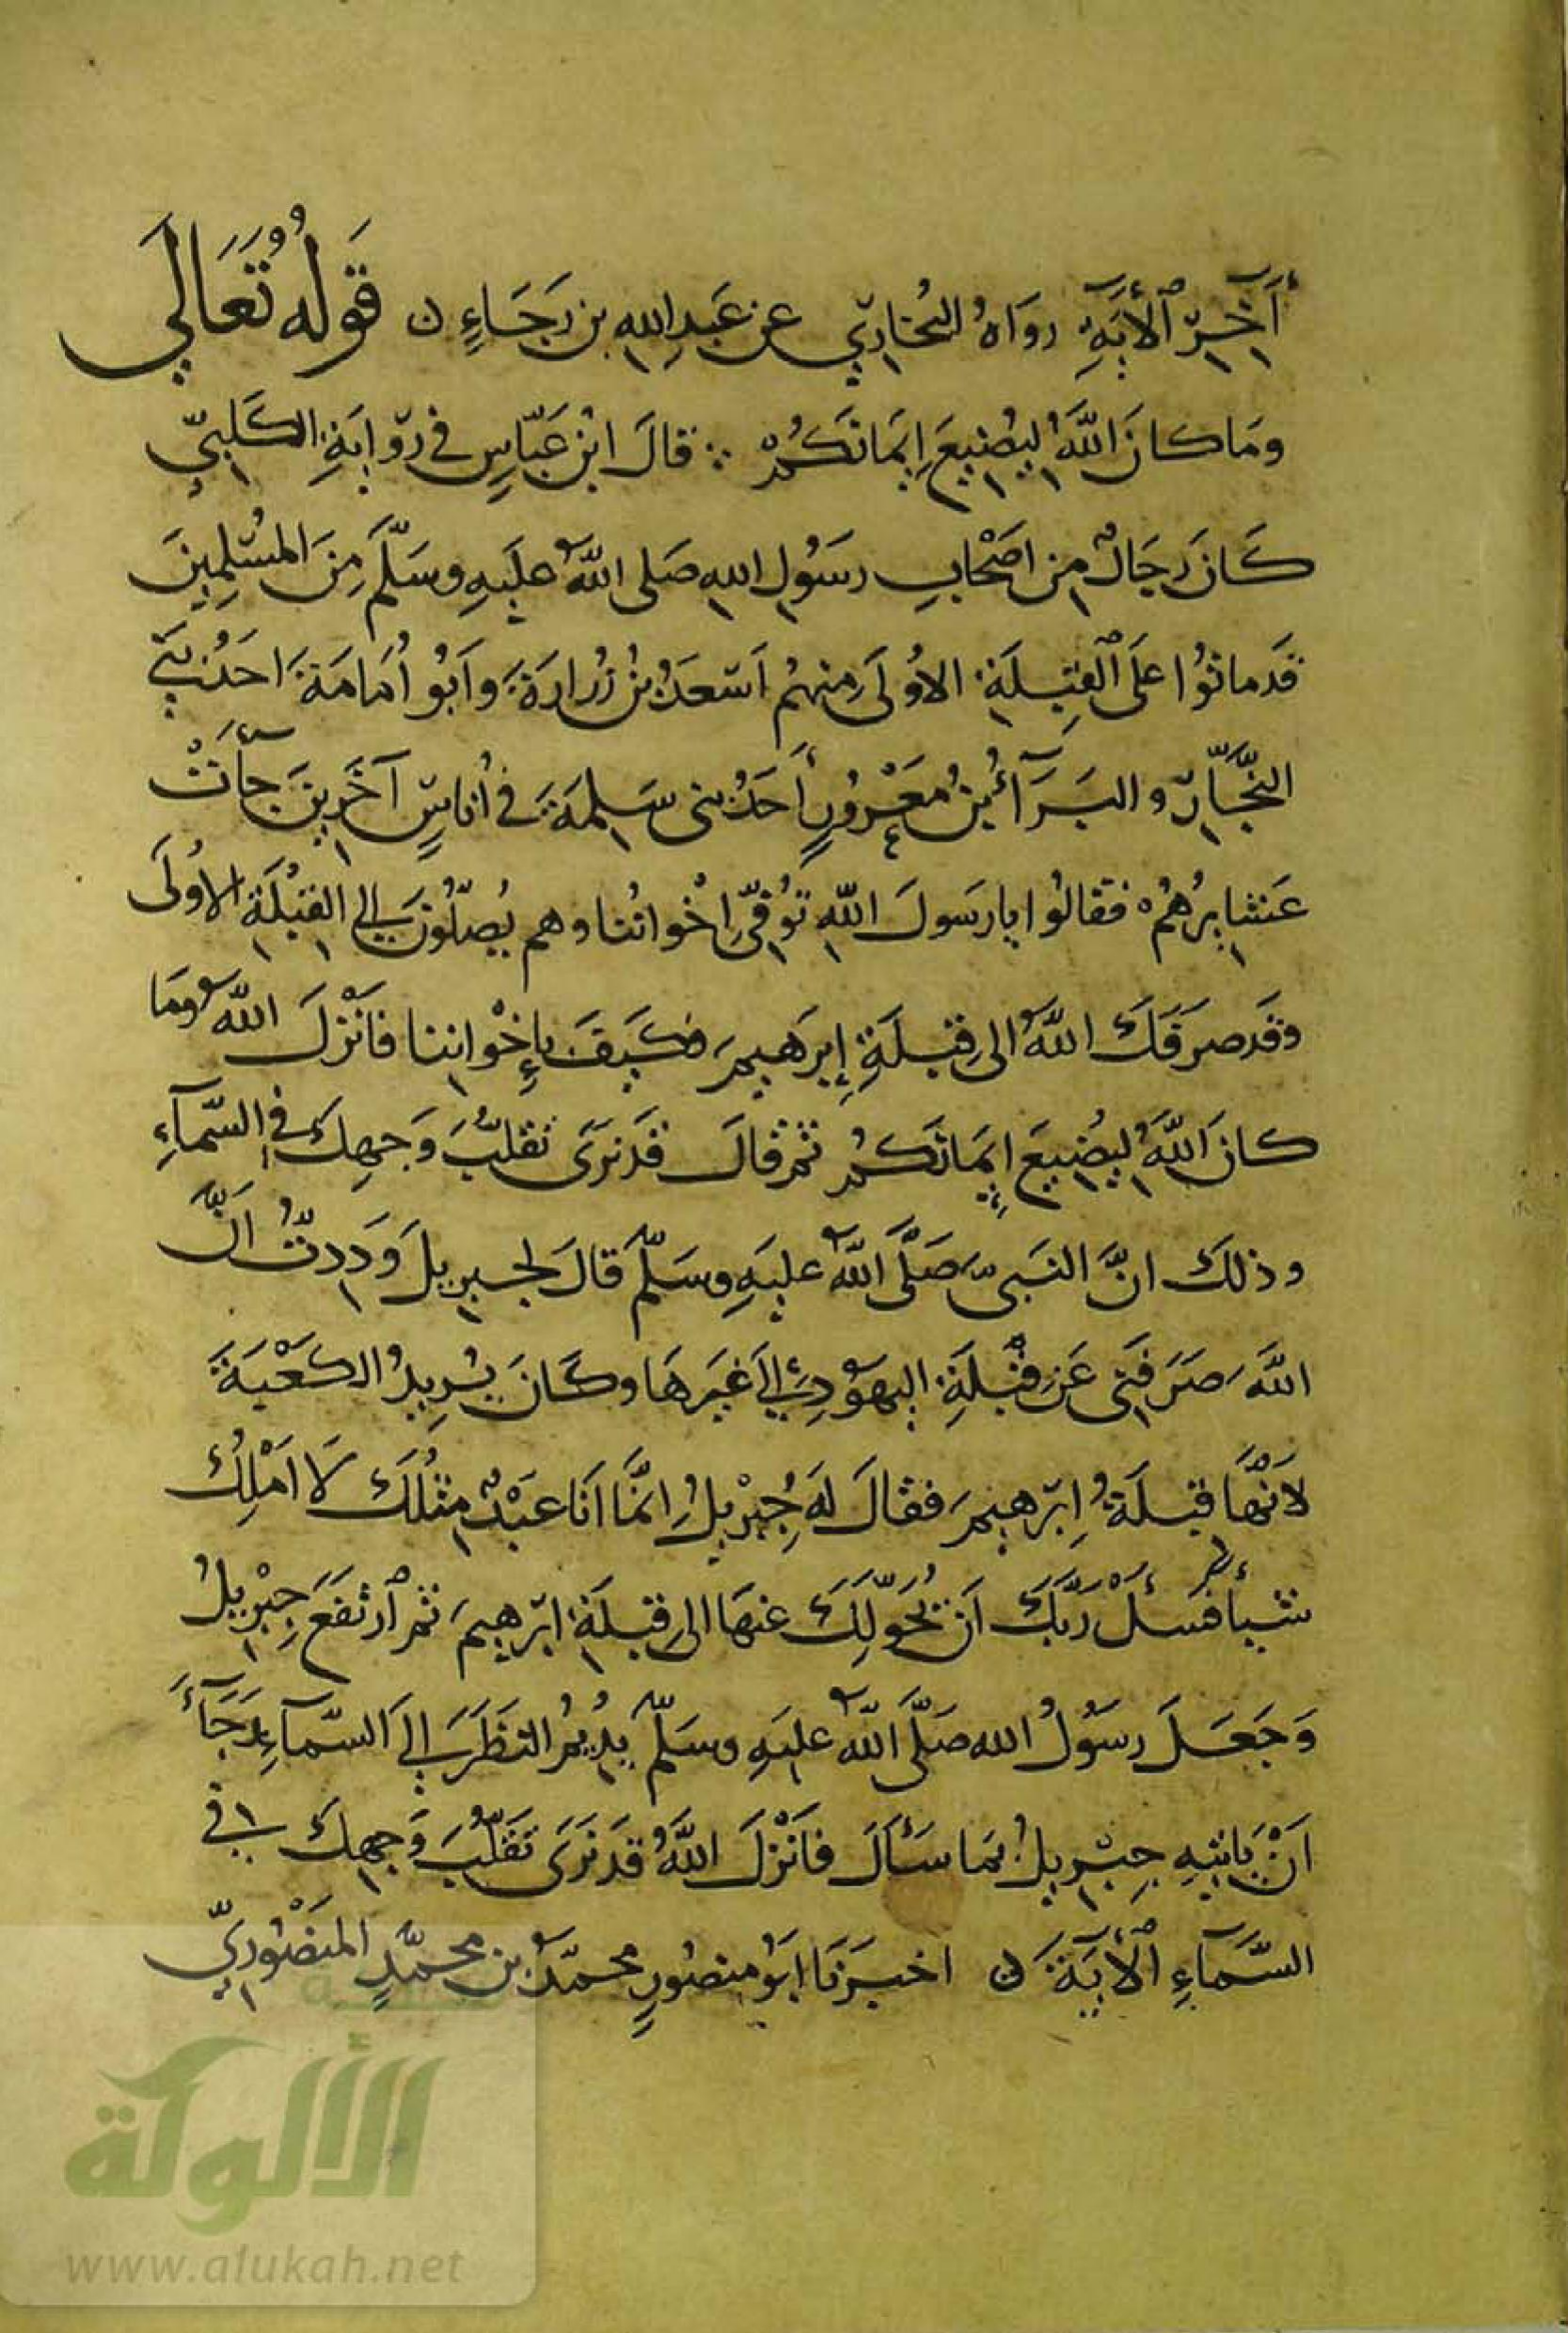 آخِرِ ٱلْأَيَةِ رَوَاهُ البُخَارِيّ عن عَبدِ اللهِ بن رَجَاءٍ ن قَولُهُ تَعَالَى
ومَا كانَ اللَّهُ لِيُضِيعَ إِيمَانَكُمْ ∴ قالَ ابْن عَبّاسٍ في رِوايَةِ الكَلبِيّ
كَانَ رِجَالٌ مِن اصْحابِ رسُولِ اللهِ صَلى اللَّهُ عليهِ وسَلَّمَ مِنَ المُسْلِمِينَ
قَد ماتُوا علَى ٱلْقِبلَةِ الاُولَى مِنهُم اَسْعَدُ بنُ زُرارَةَ وابُو اُمَامَةَ احَدُ بَنِي
النَّجَّارِ والبَرَآءُ بنُ مَعْرُورٍ أحَدُ بنى سَلِمَةَ في اُناسٍ آخَرِينَ جآءَتْ
عَشايِرُهُمْ فقالُوا يا رسَولَ اللهِ تُوُفِّيَ اِخْوانُنا وهم يُصَلُّونَ إلى القِبْلَةِ الاُولَى
وقَد صَرَفَكَ اللَّهُ الى قِبلَةِ إبرَهِيمَ فكَيفَ بإِخْوانِنا فَانْزلَ اللَّهُ ومَا
كانَ اللَّهُ لِيُضِيعَ إِيمَانَكُمْ ثم قالَ قَد نرَى تقلُّبَ وَجهِكَ في السَّمآءِ
وذلكَ انَّ النَبىَّ صَلَّى اللَّهُ عليهِ وسَلَّمَ قالَ لجبرِيلَ وَدِدتُ اَنَّ
اللَّهَ صَرَفَنِى عَن قِبْلَةِ اليهَودِ إلَى غَيرِهَا وكَانَ يُرِيدُ الكَعْبَةَ
لأَنَّهَا قبلَةُ اِبرَهِيمَ فقالَ لَهُ جِبْرِيلُ اِنمَّا اَنَا عَبْدٌ مِثلُكَ لَا اَمْلِكُ
شيأً فَسَلْ رَبَّكَ اَن يُحَوِّلَكَ عنهَا الى قِبلَةِ ابرَهِيمَ ثم ٱرتَفَعَ جِبْرِيلُ
وَجَعَلَ رسُولُ الله صَلَّى اللَّهُ عليهِ وسَلَّمَ يدُيمُ النَّظَرَ إلَى السَّمآءِ رَجَآءَ
اَنْ يَاتِيهِ جِبرِيلُ بمَا سَأَلَ فاَنْزلَ اللَّهُ قدَ نَرَى تَقَلُّبَ وَجهِكَ في
السَّمَآءِ ٱلْأيَةَ ن اخبرَنا ابُو منصُورٍ محمّدُ بن محمّدٍ المَنصُوريّ
الألوكة
www.alukah.net